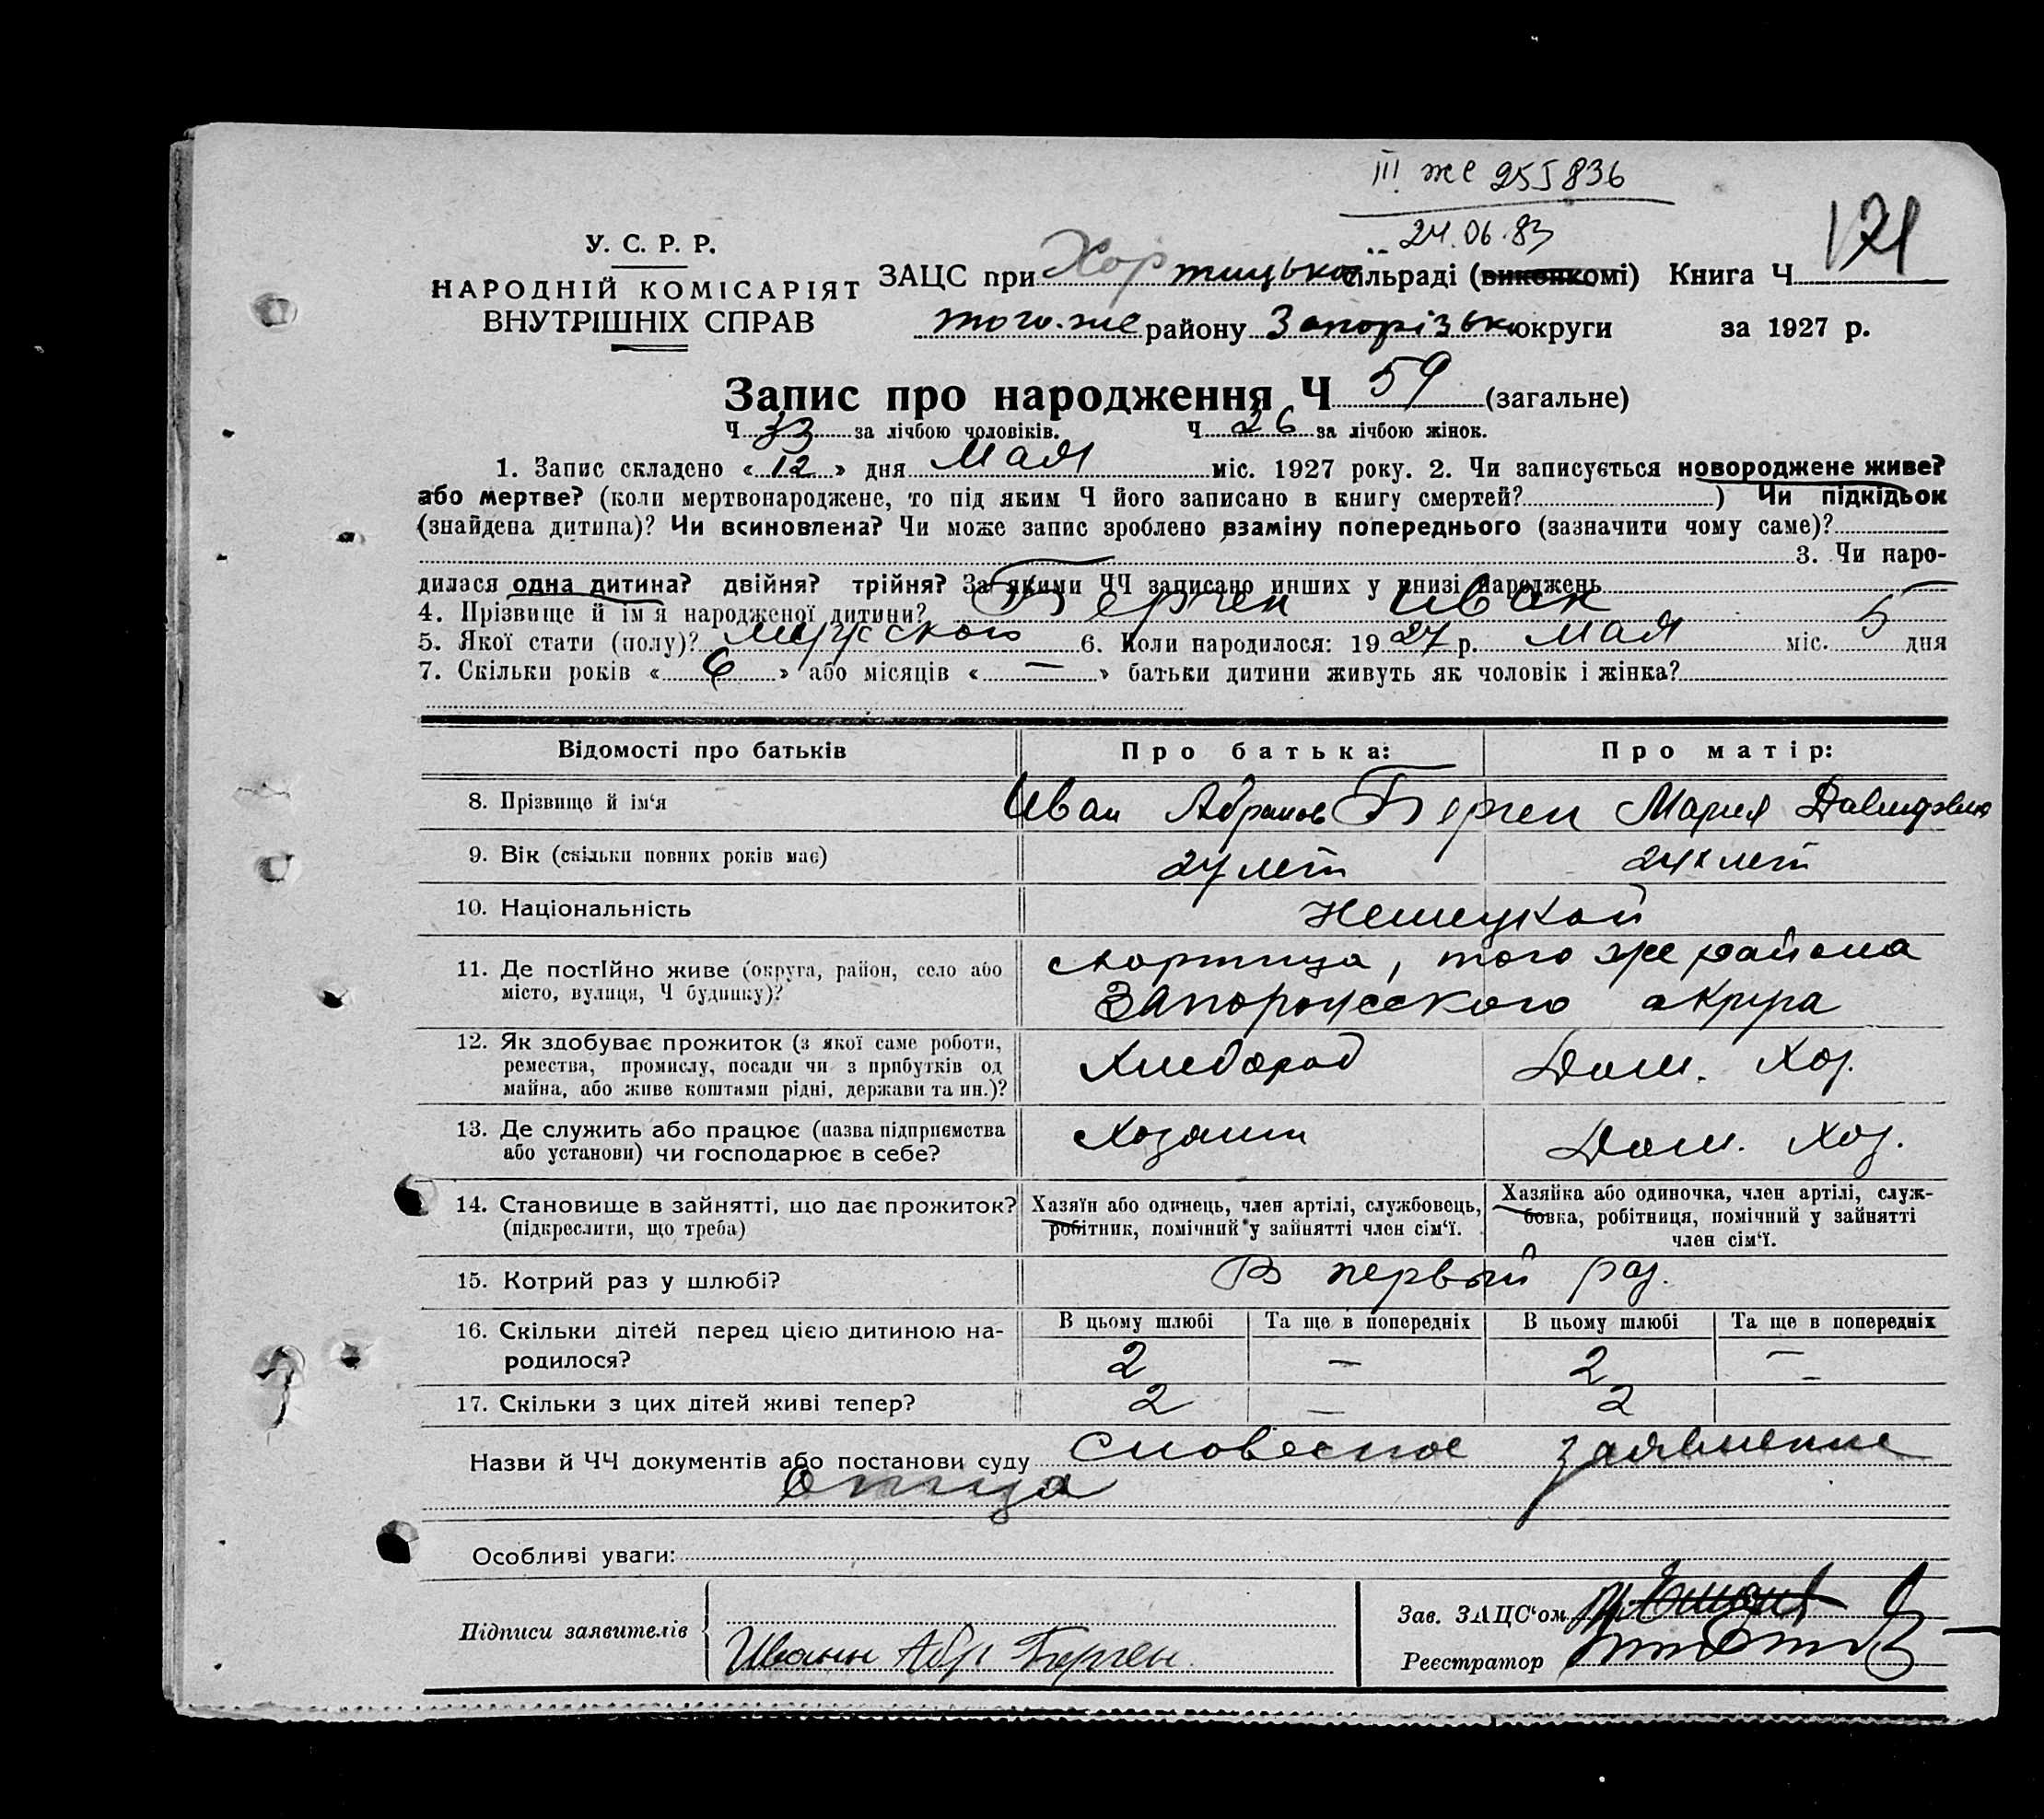 III ЖС 255836
24.06.83
171
У. С. Р. Р.
НАРОДНІЙ КОМІСАРІЯТ
ВНУТРІШНІХ СПРАВ
ЗАЦС при Хортицькой сільраді (виконкомі) Книга Ч
того-же району Запорізько округи за 1927 р.
Запис про народження Ч 59 (загальне)
Ч 33 за лічбою чоловіків. Ч 26 за лічбою жінок.
1. Запис складено «12» дня Мая міс. 1927 року. 2. Чи записується новороджене живе?
або мертве? (коли мертвонароджене, то під яким Ч його записано в книгу смертей?) Чи підкідьок
(знайдена дитина)? Чи всиновлена? Чи може запис зроблено взаміну попереднього (зазначити чому саме)?
3. Чи наро-
дилася одна дитина? двійня? трійня? За якими ЧЧ записано инших у книзі народжень
4. Прізвище й ім'я народженої дитини? Берген Иван
5. Якої стати (полу)? мужского 6. Коли народилося: 1927 р. Мая міс. 5 дня
7. Скільки років «6» або місяців «—» батьки дитини живуть як чоловік і жінка?
Відомості про батьків Про батька: Про матір:
8. Прізвище й ім'я Иван Абрамов Берген Мария Давидовна
9. Вік (скільки повних років має) 27 лет 24 лет
10. Національність Немецкой
11. Де постійно живе (округа, район, село або місто, вулиця, Ч будинку)? Хортица, того же района
Запорожского округа
12. Як здобуває прожиток (з якої саме роботи, ремества, промислу, посади чи з прибутків од майна, або живе коштами рідні, держави та ин.)? Хлебороб Дом. Хоз.
13. Де служить або працює (назва підприємства або установи) чи господарює в себе? Хозаин Дом. Хоз.
14. Становище в зайнятті, що дає прожиток? (підкреслити, що треба) Хазяїн або одинець, член артілі, службовець, робітник, помічний у зайнятті член сім'ї. Хазяйка або одиночка, член артілі, служ-
бовка, робітниця, помічний у зайнятті
член сім'ї.
15. Котрий раз у шлюбі? В первый раз.
16. Скільки дітей перед цією дитиною на-
родилося? В цьому шлюбі Та ще в попередніх В цьому шлюбі Та ще в попередніх
2 — 2 —
17. Скільки з цих дітей живі тепер? 2 — 2 —
Назви й ЧЧ документів або постанови суду Словесное заявление
отца
Особливі уваги:
Підписи заявителів Иванн Абр Берген
Зав. ЗАЦС'ом
Реєстратор